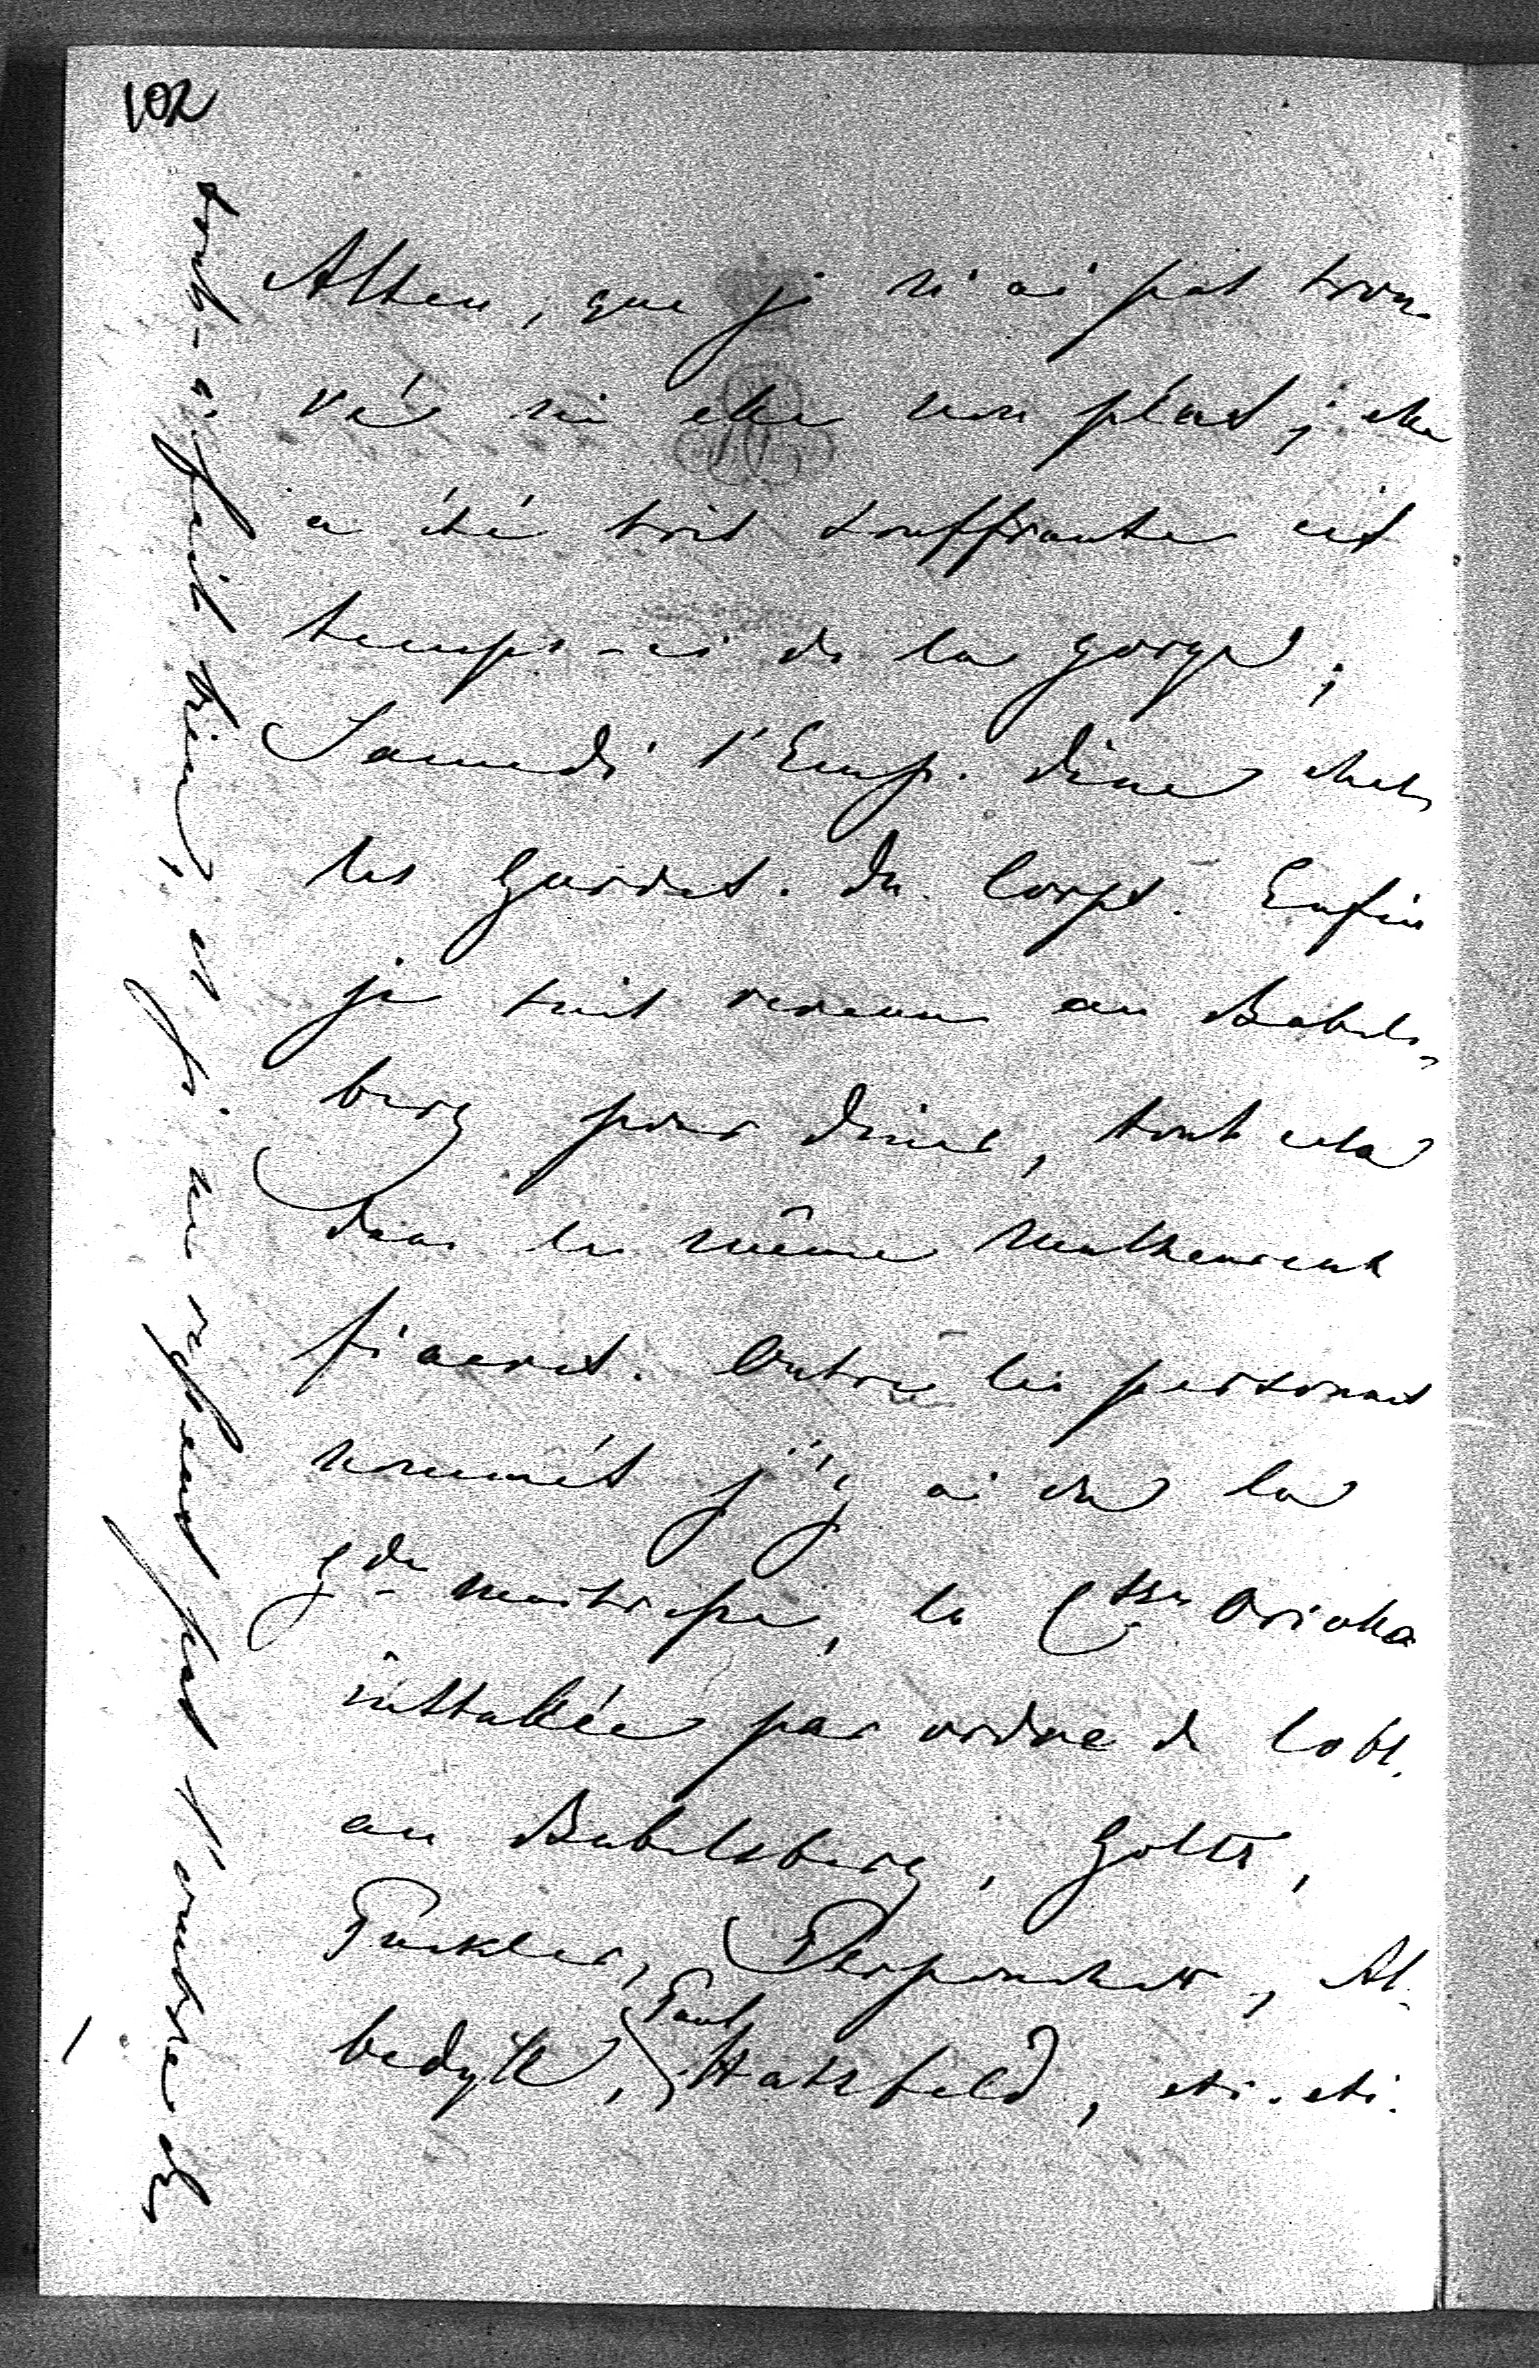 102
Alten, que je n'ai pas trou-
vée ni elle non plus; elle
a été très souffrante ces
temps-ci de la gorge;
Samedi l'Emp. dine chez
les Gardes. du Corps. Enfin
je suis revenu au Babels-
berg pour diner, tout cela
dans le même malheureux
fiacres. Outre les personnes
nommés j'y ai vu la
gde maitresse, la Ctsse Oriolla
installée par ordre de Cobl.
au Babelsberg, Goltz,
Puckler, Perponcher, Al-
bedyll, Paul Hatzfeld, etc. etc.
tout-à-fait bien, et je ne repeans pas l'ombre de